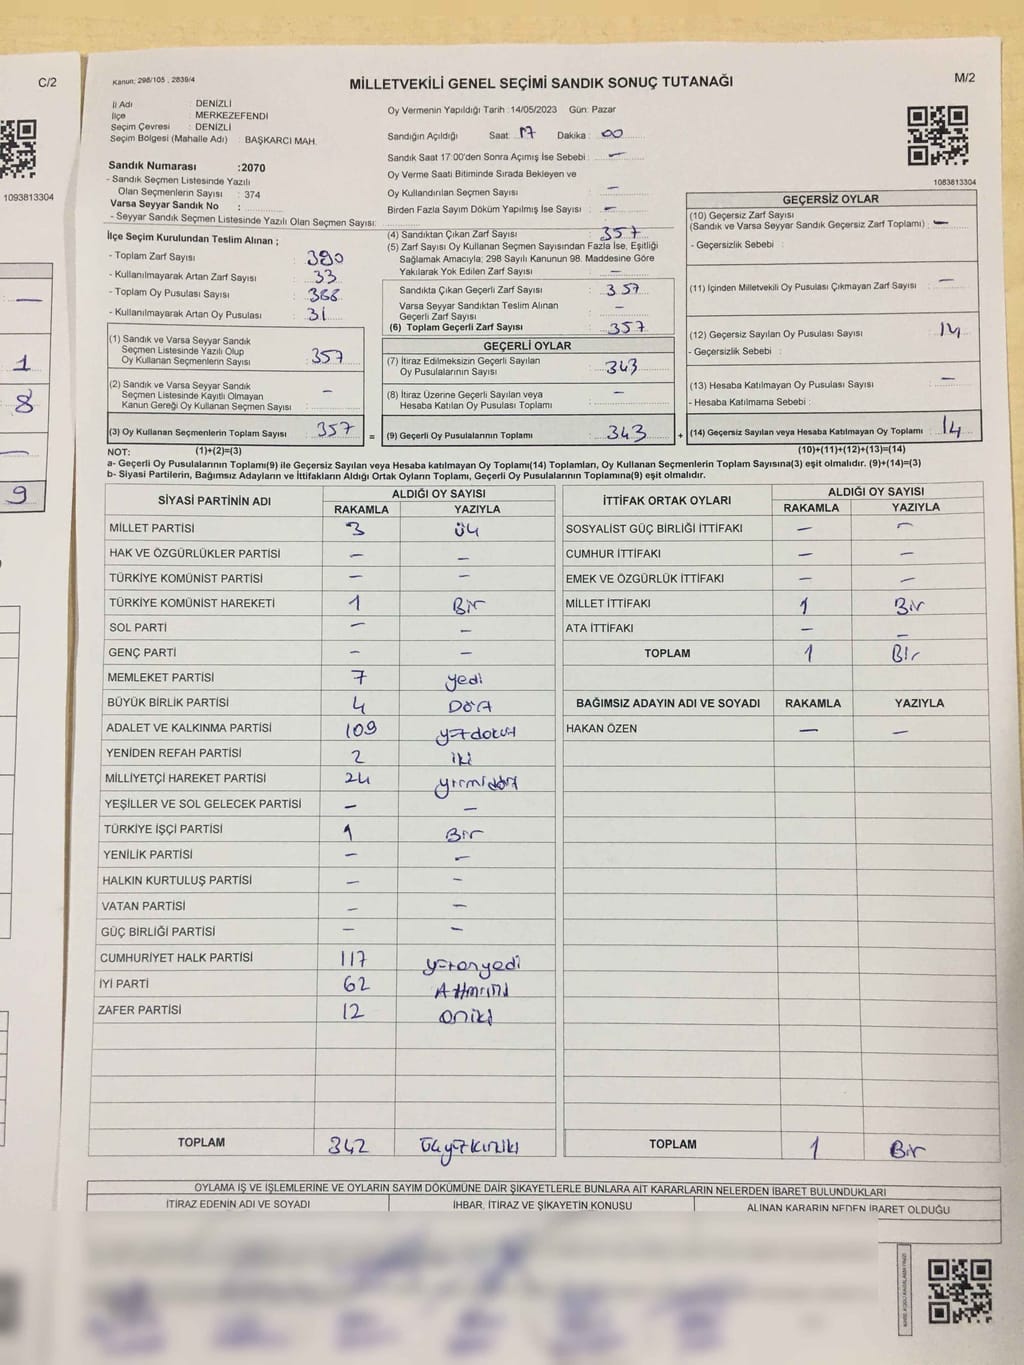 C/2
1093813304
1
8
9
Kanun: 298/105 , 2839/4
MİLLETVEKİLİ GENEL SEÇİMİ SANDIK SONUÇ TUTANAĞI
M/2
İl Adı : DENİZLİ
İlçe : MERKEZEFENDİ
Seçim Çevresi : DENİZLİ
Seçim Bölgesi (Mahalle Adı) : BAŞKARCI MAH.
Sandık Numarası :2070
- Sandık Seçmen Listesinde Yazılı
Olan Seçmenlerin Sayısı : 374
Varsa Seyyar Sandık No :
- Seyyar Sandık Seçmen Listesinde Yazılı Olan Seçmen Sayısı:
İlçe Seçim Kurulundan Teslim Alınan ;
- Toplam Zarf Sayısı : 390
- Kullanılmayarak Artan Zarf Sayısı : 33
- Toplam Oy Pusulası Sayısı : 388
- Kullanılmayarak Artan Oy Pusulası : 31
(1) Sandık ve Varsa Seyyar Sandık
Seçmen Listesinde Yazılı Olup
Oy Kullanan Seçmenlerin Sayısı : 357
(2) Sandık ve Varsa Seyyar Sandık
Seçmen Listesinde Kayıtlı Olmayan
Kanun Gereği Oy Kullanan Seçmen Sayısı : —
(3) Oy Kullanan Seçmenlerin Toplam Sayısı : 357
Oy Vermenin Yapıldığı Tarih : 14/05/2023 Gün: Pazar
Sandığın Açıldığı Saat: 17 Dakika : 00
Sandık Saat 17:00'den Sonra Açımış İse Sebebi : —
Oy Verme Saati Bitiminde Sırada Bekleyen ve
Oy Kullandırılan Seçmen Sayısı : —
Birden Fazla Sayım Döküm Yapılmış İse Sayısı : —
(4) Sandıktan Çıkan Zarf Sayısı : 357
(5) Zarf Sayısı Oy Kullanan Seçmen Sayısından Fazla İse, Eşitliği
Sağlamak Amacıyla; 298 Sayılı Kanunun 98. Maddesine Göre
Yakılarak Yok Edilen Zarf Sayısı : —
Sandıkta Çıkan Geçerli Zarf Sayısı : 357
Varsa Seyyar Sandıktan Teslim Alınan
Geçerli Zarf Sayısı : —
(6) Toplam Geçerli Zarf Sayısı : 357
GEÇERLİ OYLAR
(7) İtiraz Edilmeksizin Geçerli Sayılan
Oy Pusulalarının Sayısı : 343
(8) İtiraz Üzerine Geçerli Sayılan veya
Hesaba Katılan Oy Pusulası Toplamı : —
= (9) Geçerli Oy Pusulalarının Toplamı : 343
1083813304
GEÇERSİZ OYLAR
(10) Geçersiz Zarf Sayısı
(Sandık ve Varsa Seyyar Sandık Geçersiz Zarf Toplamı) : —
- Geçersizlik Sebebi :
(11) İçinden Milletvekili Oy Pusulası Çıkmayan Zarf Sayısı : —
(12) Geçersiz Sayılan Oy Pusulası Sayısı : 14
- Geçersizlik Sebebi :
(13) Hesaba Katılmayan Oy Pusulası Sayısı : —
- Hesaba Katılmama Sebebi :
+ (14) Geçersiz Sayılan veya Hesaba Katılmayan Oy Toplamı : 14
NOT: (1)+(2)=(3) (10)+(11)+(12)+(13)=(14)
a- Geçerli Oy Pusulalarının Toplamı(9) ile Geçersiz Sayılan veya Hesaba katılmayan Oy Toplamı(14) Toplamları, Oy Kullanan Seçmenlerin Toplam Sayısına(3) eşit olmalıdır. (9)+(14)=(3)
b- Siyasi Partilerin, Bağımsız Adayların ve İttifakların Aldığı Ortak Oyların Toplamı, Geçerli Oy Pusulalarının Toplamına(9) eşit olmalıdır.
SİYASİ PARTİNİN ADI ALDIĞI OY SAYISI
RAKAMLA YAZIYLA
MİLLET PARTİSİ 3 üç
HAK VE ÖZGÜRLÜKLER PARTİSİ — —
TÜRKİYE KOMÜNİST PARTİSİ — —
TÜRKİYE KOMÜNİST HAREKETİ 1 Bir
SOL PARTİ — —
GENÇ PARTİ — —
MEMLEKET PARTİSİ 7 yedi
BÜYÜK BİRLİK PARTİSİ 4 Dört
ADALET VE KALKINMA PARTİSİ 109 yüzdokuz
YENİDEN REFAH PARTİSİ 2 iki
MİLLİYETÇİ HAREKET PARTİSİ 24 yirmidört
YEŞİLLER VE SOL GELECEK PARTİSİ — —
TÜRKİYE İŞÇİ PARTİSİ 1 Bir
YENİLİK PARTİSİ — —
HALKIN KURTULUŞ PARTİSİ — —
VATAN PARTİSİ — —
GÜÇ BİRLİĞİ PARTİSİ — —
CUMHURİYET HALK PARTİSİ 117 yüzonyedi
İYİ PARTİ 62 Altmışiki
ZAFER PARTİSİ 12 oniki
TOPLAM 342 üçyüzkırkiki
İTTİFAK ORTAK OYLARI ALDIĞI OY SAYISI
RAKAMLA YAZIYLA
SOSYALİST GÜÇ BİRLİĞİ İTTİFAKI — —
CUMHUR İTTİFAKI — —
EMEK VE ÖZGÜRLÜK İTTİFAKI — —
MİLLET İTTİFAKI 1 Bir
ATA İTTİFAKI — —
TOPLAM 1 Bir
BAĞIMSIZ ADAYIN ADI VE SOYADI RAKAMLA YAZIYLA
HAKAN ÖZEN — —
TOPLAM 1 Bir
OYLAMA İŞ VE İŞLEMLERİNE VE OYLARIN SAYIM DÖKÜMÜNE DAİR ŞİKAYETLERLE BUNLARA AİT KARARLARIN NELERDEN İBARET BULUNDUKLARI
İTİRAZ EDENİN ADI VE SOYADI İHBAR, İTİRAZ VE ŞİKAYETİN KONUSU ALINAN KARARIN NEDEN İBARET OLDUĞU